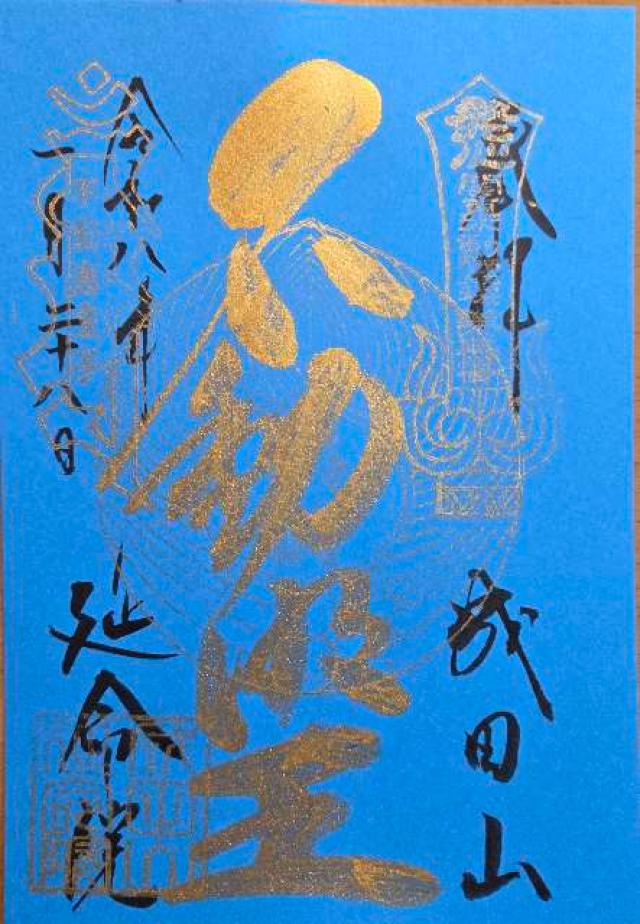 奉拝
成田山
不動明王
令和八年
一月二十八日
延命院